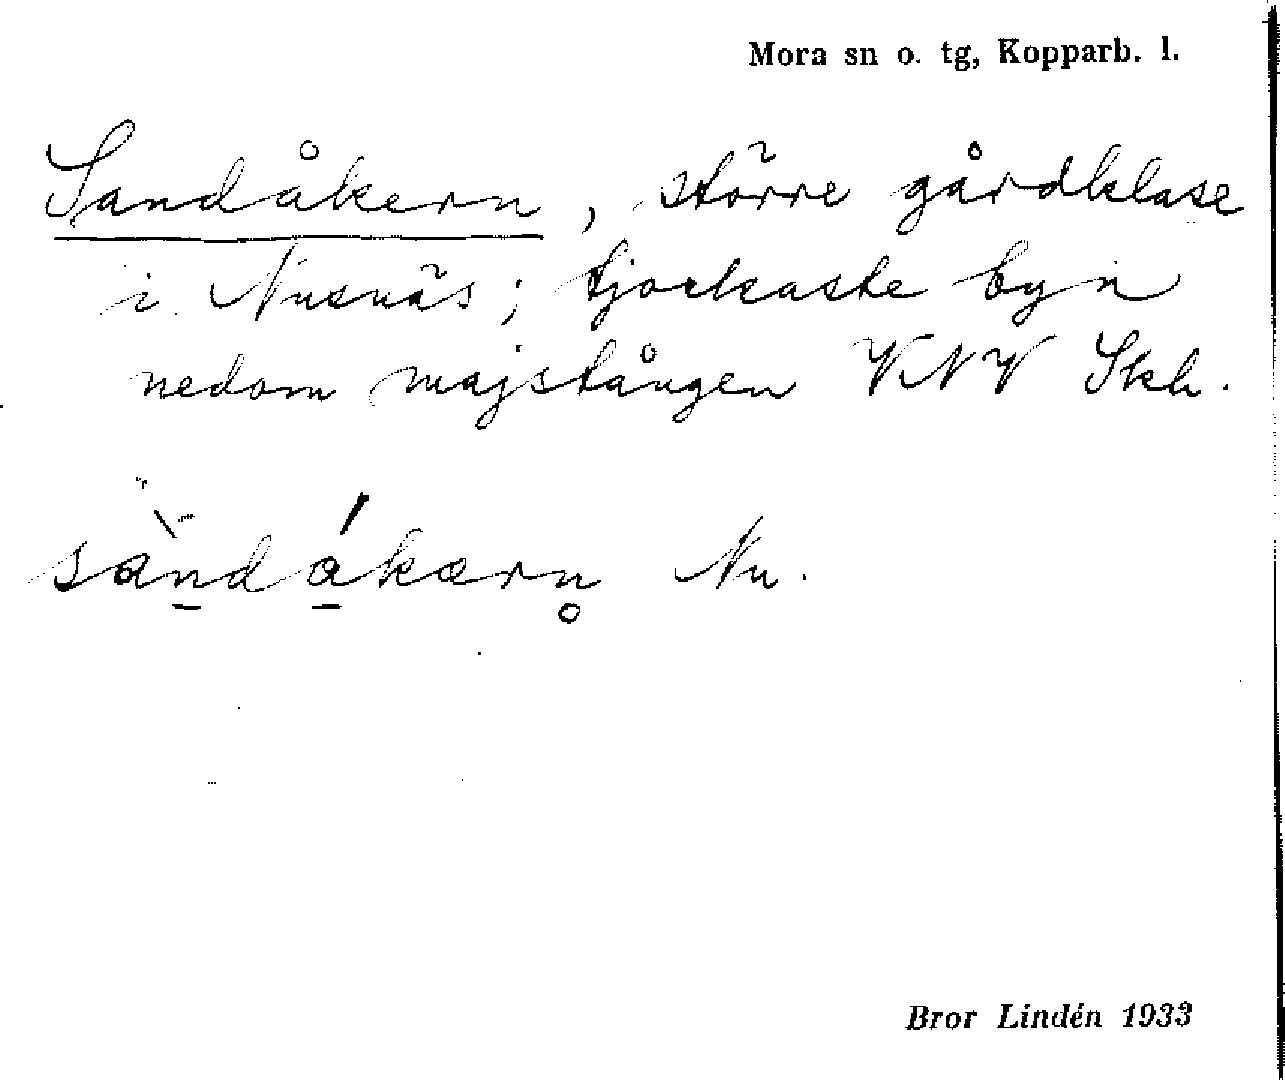 Mora sn o. tg, Kopparb. l.
Sandåkern, större gårdklase
i Nusnäs; tjockaste byn
nedom majstången VNV Skh.
sàndákærn̥ Nu.
Bror Lindén 1933